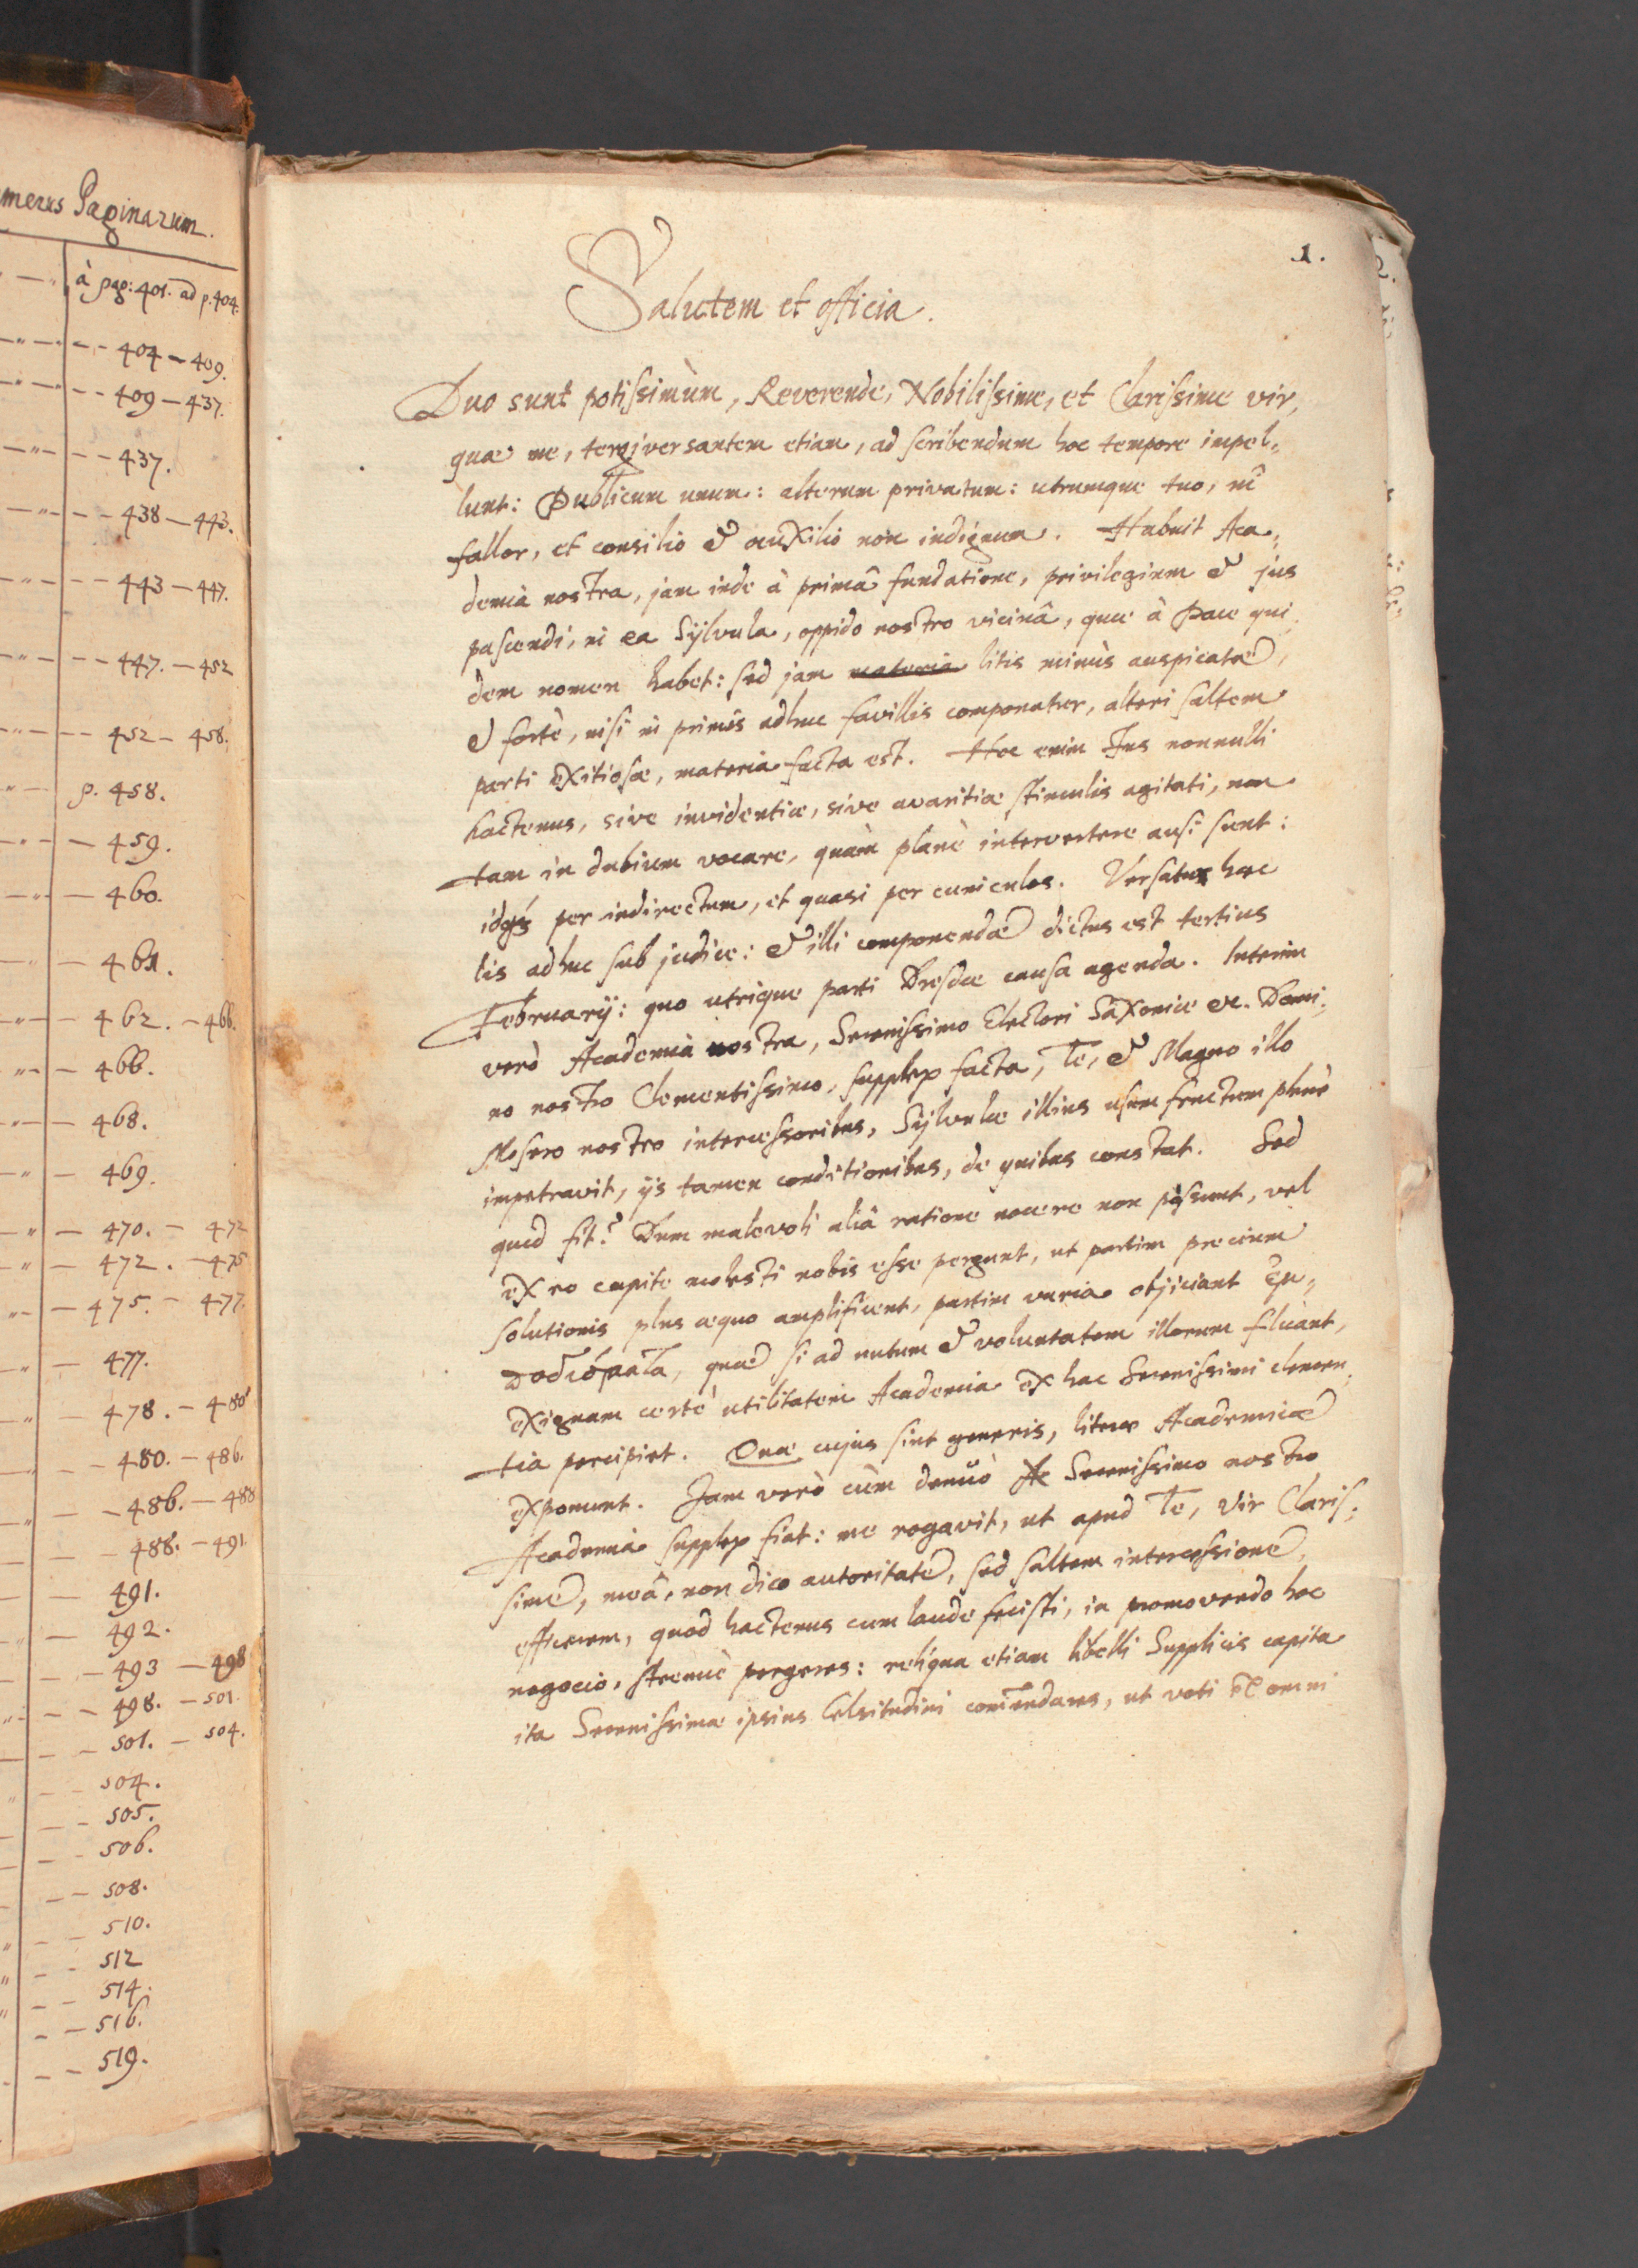 Paginarum.
à pag: 401. ad p. 404.
404 — 409.
409 — 437.
437.
438 — 443.
443 — 447.
447. — 452
452 — 458.
p. 458.
459.
460.
461.
462. — 466.
466.
468.
469.
470. — 472
472. — 475
475. — 477.
477.
478. — 480
480. — 486.
486. — 488
488. — 491
491.
492.
493 — 498
498. — 501.
501. — 504.
504.
505.
506.
508.
510.
512
514.
516.
519.
1.
Salutem et officia.
Duo sunt potissimùm, Reverende, Nobilissime, et Clarissime vir,
quae me, tergiversantem etiam, ad scribendum hoc tempore impel„
lunt: Publicum unum: alterum privatum: utrumque tuo, ni
fallor, et consilio & auxilio non indignum. Habuit Aca„
demia nostra, jam inde à primâ fundatione, privilegium & jus
pascendi, in ea Sylvula, oppido nostro vicinâ, quae à Pace qui„
dem nomen habet: sed jam materia litis minùs auspicatae,
& fortè, nisi in primis adhuc favillis componatur, alteri saltem
parti exitiosae, materia facta est. Hoc enim Jus nonnulli
hactenus, sive invidentiae, sive avaritiae stimulis agitati, non
tam in dubium vocare, quàm planè intervertere ausi sunt:
idqɜ per indirectum, et quasi per cuniculos. Versatur haec
lis adhuc sub judice: & illi componendae dictus est tertius
February: quo utrique parti Dresdae causa agenda. Interim
verò Academia nostra, Serenissimo Electori Saxoniae &c. Domi„
no nostro Clementissimo, supplex facta, Te, & Magno illo
Mosero nostro intercessoribus, Sylvulae illius usum fructum planè
impetravit, ijs tamen conditionibus, de quibus constat. Sed
quid fit? Dum malevoli aliâ ratione nocere non possunt, vel
ex eo capite molesti nobis esse pergunt, ut partim precium
solutionis plus aequo amplificent, partim varia objiciant ἐμ„
ποδίσματα, quae si ad nutum & voluntatem illorum fluant,
exiguam certè utilitatem Academia ex hac Serenissimi clemen„
tia percipiet. Quae cujus sint generis, literae Academicae
exponunt. Jam verò cùm denuò Serenissimo nostro
Academia supplex fiat: me rogavit, ut apud Te, Vir Claris„
sime, meâ, non dico autoritate, sed saltem intercessione,
efficerem, quod hactenus cum laude fecisti, in promovendo hoc
negocio, strenuè pergeres: reliqua etiam libelli Supplicis capita
ita Serenissimae ipsius Celsitudini com̃endares, ut voti ex omni